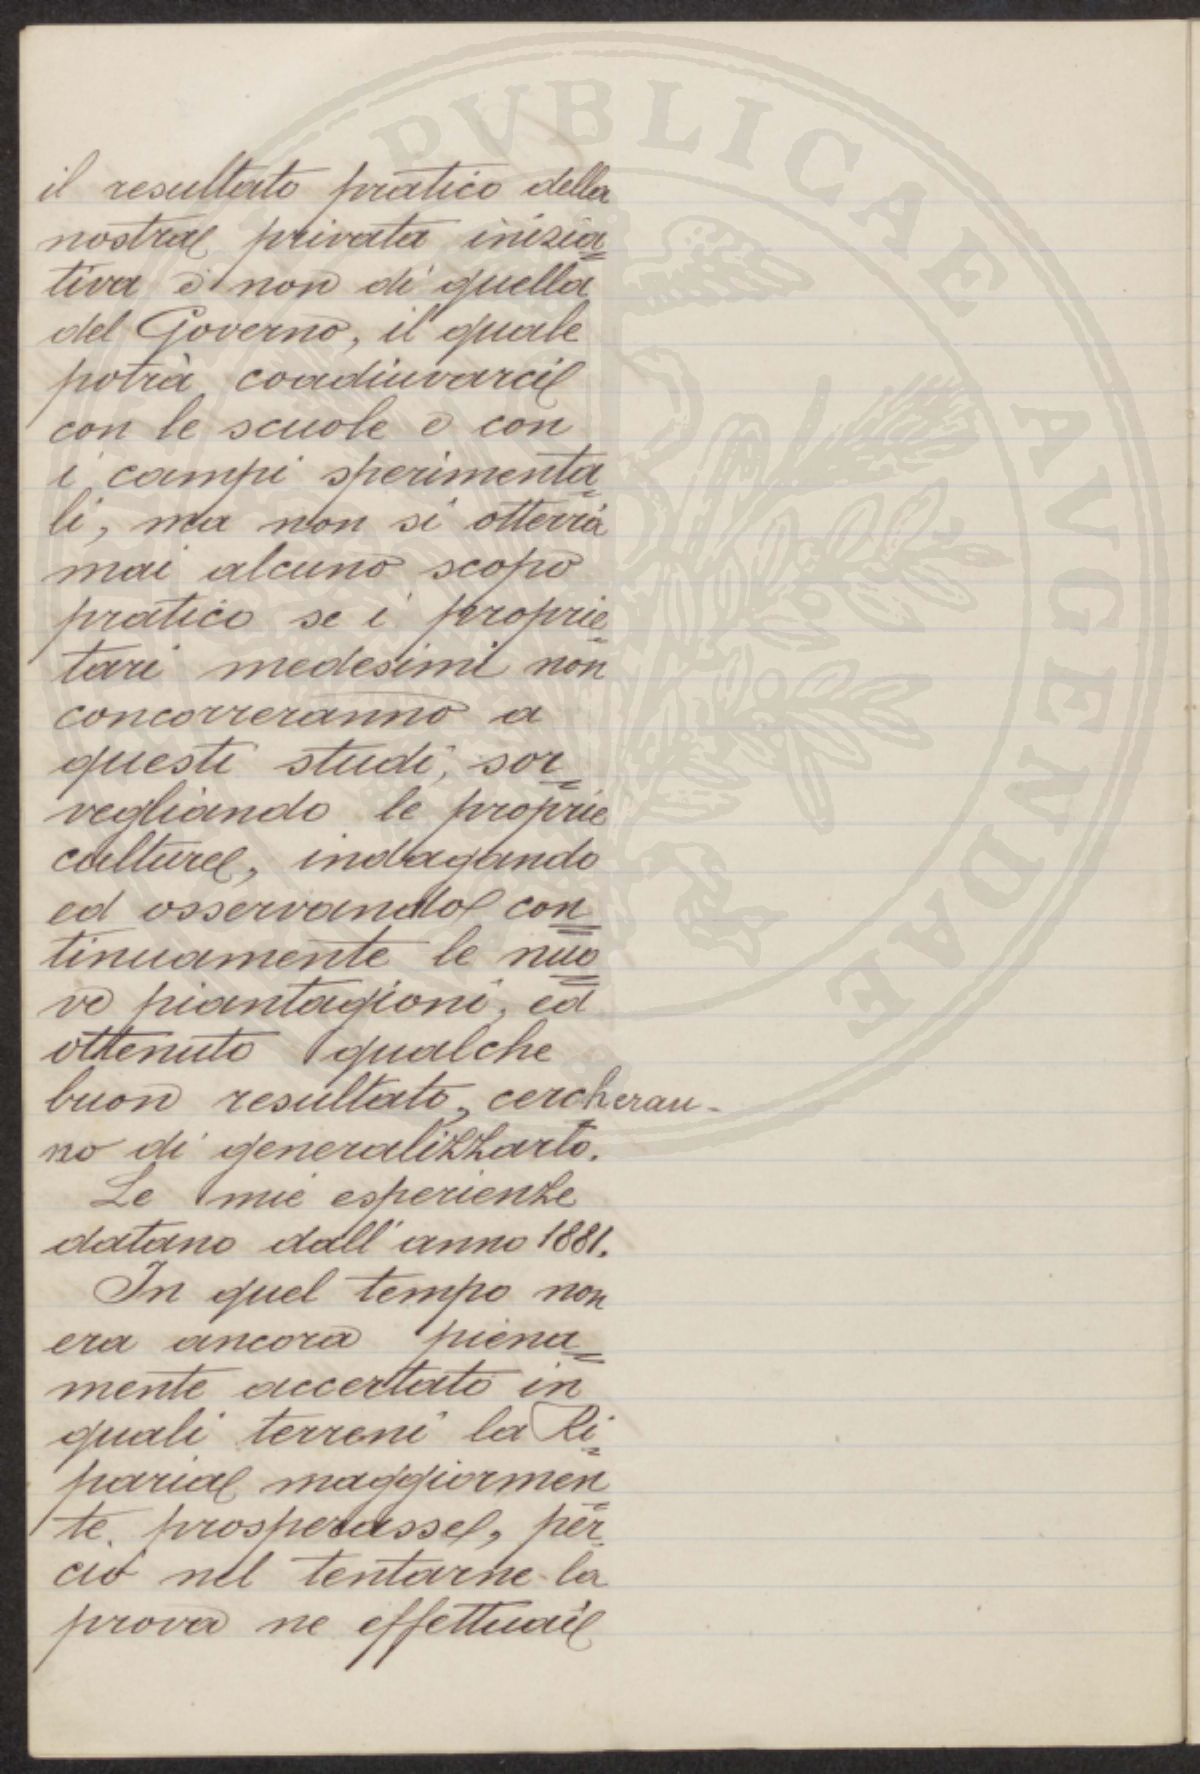 il resultato pratico della
nostra privata inizia=
tiva e non di quella
del Governo, il quale
potrà coadiuvarci
con le scuole e con
i campi sperimenta=
li, ma non si otterrà
mai alcuno scopo
pratico se i proprie=
tari medesimi non
concorreranno a
questi studi, sor=
vegliando le proprie
culture, indagando
ed osservando con=
tinuamente le nuo=
ve piantagioni, ed
ottenuto qualche
buon resultato, cercheran-
no di generalizzarlo.
Le mie esperienze
datano dall'anno 1881.
In quel tempo non
era ancora piena=
mente accertato in
quali terreni la Ri=
paria maggiormen=
te prosperasse, per=
ciò nel tentarne la
prova ne effettuai
PUBLICAE AVGENDAE